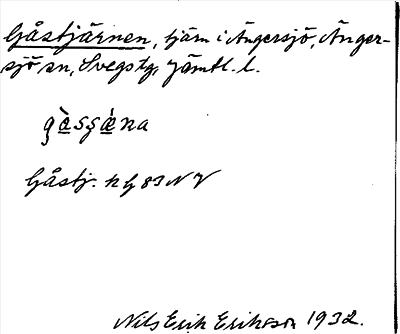 Gåstjärnen, tjärn i Ängersjö, Änger-
sjö sn, Svegs tg, Jämtl. l.
gæ̀sʂæ̀na
Gåstj. h G 83 N V
Nils Erik Erikson 1932.